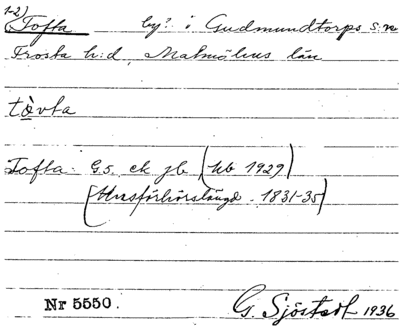 1-2)
Tofta by? i Gudmundtorps s:n
Frosta h:d, Malmöhus län
tòvta
Tofta: G.5. ek jb (Ub 1929)
(Husförhörslängd. 1831-35)
Nr 5550. G. Sjöstedt 1936